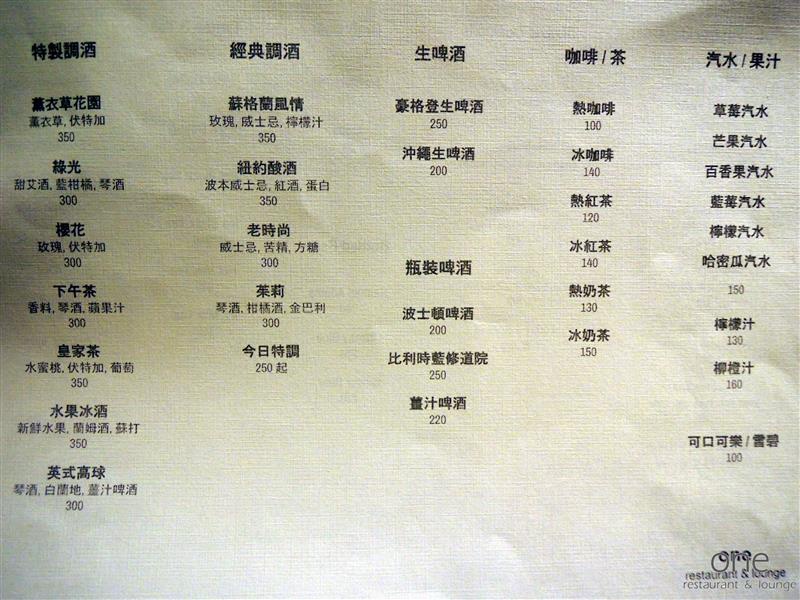 特製調酒
薰衣草花園
薰衣草, 伏特加
350
綠光
甜艾酒, 藍柑橘, 琴酒
300
櫻花
玫瑰, 伏特加
300
下午茶
香料, 琴酒, 蘋果汁
300
皇家茶
水蜜桃, 伏特加, 葡萄
350
水果冰酒
新鮮水果, 蘭姆酒, 蘇打
350
英式高球
琴酒, 白蘭地, 薑汁啤酒
300
經典調酒
蘇格蘭風情
玫瑰, 威士忌, 檸檬汁
350
紐約酸酒
波本威士忌, 紅酒, 蛋白
350
老時尚
威士忌, 苦精, 方糖
300
茱莉
琴酒, 柑橘酒, 金巴利
300
今日特調
250 起
生啤酒
豪格登生啤酒
250
沖繩生啤酒
200
瓶裝啤酒
波士頓啤酒
200
比利時藍修道院
250
薑汁啤酒
220
咖啡 / 茶
熱咖啡
100
冰咖啡
140
熱紅茶
120
冰紅茶
140
熱奶茶
130
冰奶茶
150
汽水 / 果汁
草莓汽水
芒果汽水
百香果汽水
藍莓汽水
檸檬汽水
哈密瓜汽水
150
檸檬汁
130
柳橙汁
160
可口可樂 / 雪碧
100
one
restaurant & lounge
one
restaurant & lounge